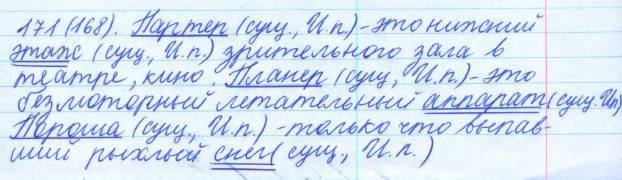 171 (168). Партер (сущ., И.п.) - это нижний
этаж (сущ., И.п.) зрительного зала в
театре, кино. Планер (сущ., И.п.) - это
безмоторный летательный аппарат (сущ. И.п)
Пороша (сущ., И.п.) - только что выпав-
ший рыхлый снег (сущ., И.п.)